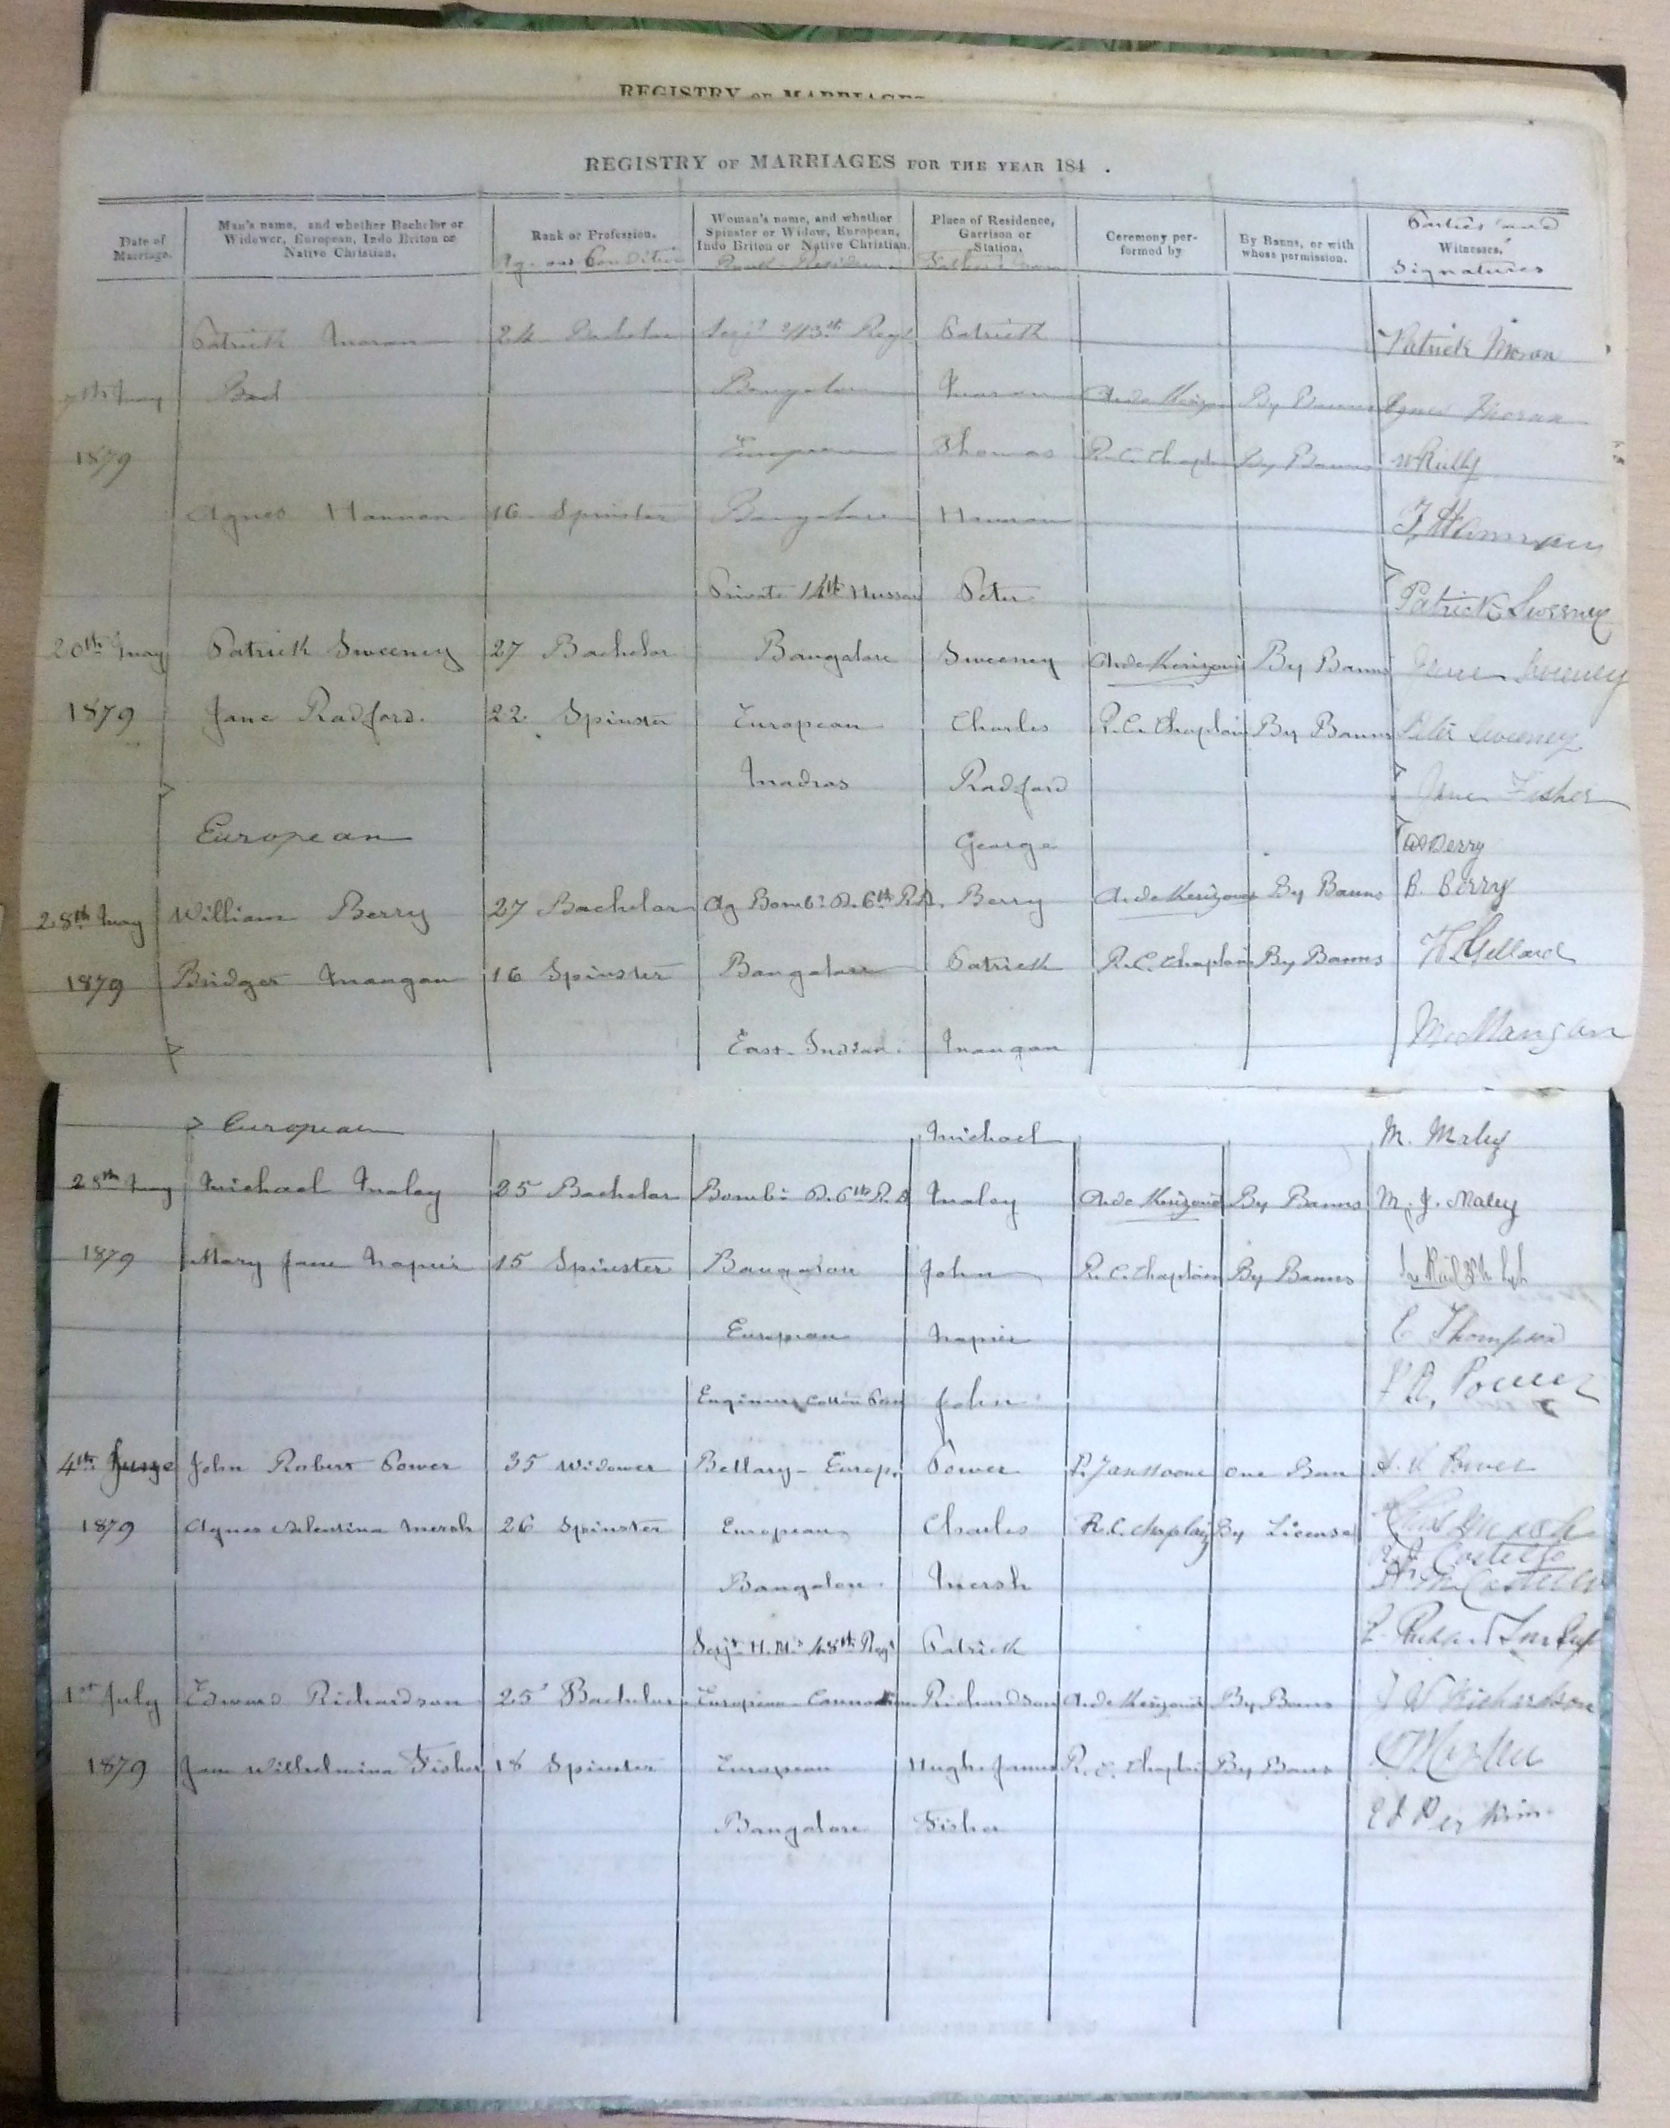 REGISTRY OF MARRIAGES
REGISTRY OF MARRIAGES FOR THE YEAR 184 .
Date of Marriage. Man's name, and whether Bachelor or Widower, European, Indo Briton or Native Christian. Rank or Profession. Woman's name, and whether Spinster or Widow, European, Indo Briton or Native Christian. Place of Residence, Garrison or Station. Ceremony performed by By Banns, or with whose permission. Parties' and Witnesses' Signatures
Age and Condition Rank - Residence Father's name
Patrick Moran 24 Bachelor Serjt 2/13th Regt Patrick Patrick Moran
7th May Bangalore Moran By Banns Agnes Moran
1879 European Thomas R.C. Chapln By Banns W Reilly
Agnes Hannan 16 Spinster Bangalore Hannan T. Hannan
Private 14th Hussars Peter Patrick Sweeney
20th May Patrick Sweeney 27 Bachelor Bangalore Sweeney By Banns Jane Sweeney
1879 Jane Radford. 22 Spinster European Charles R.C. Chaplain By Banns Peter Sweeney
Madras Radford Jane Fisher
European George W Berry
28th May William Berry 27 Bachelor Ag Bombr D. 6th R.A. Berry By Banns B. Berry
1879 Bridget Mangan 16 Spinster Bangalore Patrick R.C. Chaplain By Banns
East Indian. Mangan M. Mangan
European Michael M. Maley
28th May Michael Maley 25 Bachelor Bombr D. 6th R.A Maley By Banns M. J. Maley
1879 Mary Jane Napier 15 Spinster Bangalore John R.C. Chaplain By Banns
European Napier C Thompson
Engineer Cotton John Power
4th June John Robert Power 35 Widower Bellary - Europ. Power P. Janssoone One Bann Power
1879 Agnes Valentina Mersh 26 Spinster European Charles R.C. Chaplain By License
R. J. Costello
Bangalore Mersh Costello
Serjt H.M's 48th Regt Patrick
1st July Edward Richardson 25 Bachelor European Cannanore Richardson By Banns J W Richardson
1879 Jane Wilhelmina Fisher 18 Spinster European Hugh James R.C. Chaplain By Banns
Bangalore Fisher